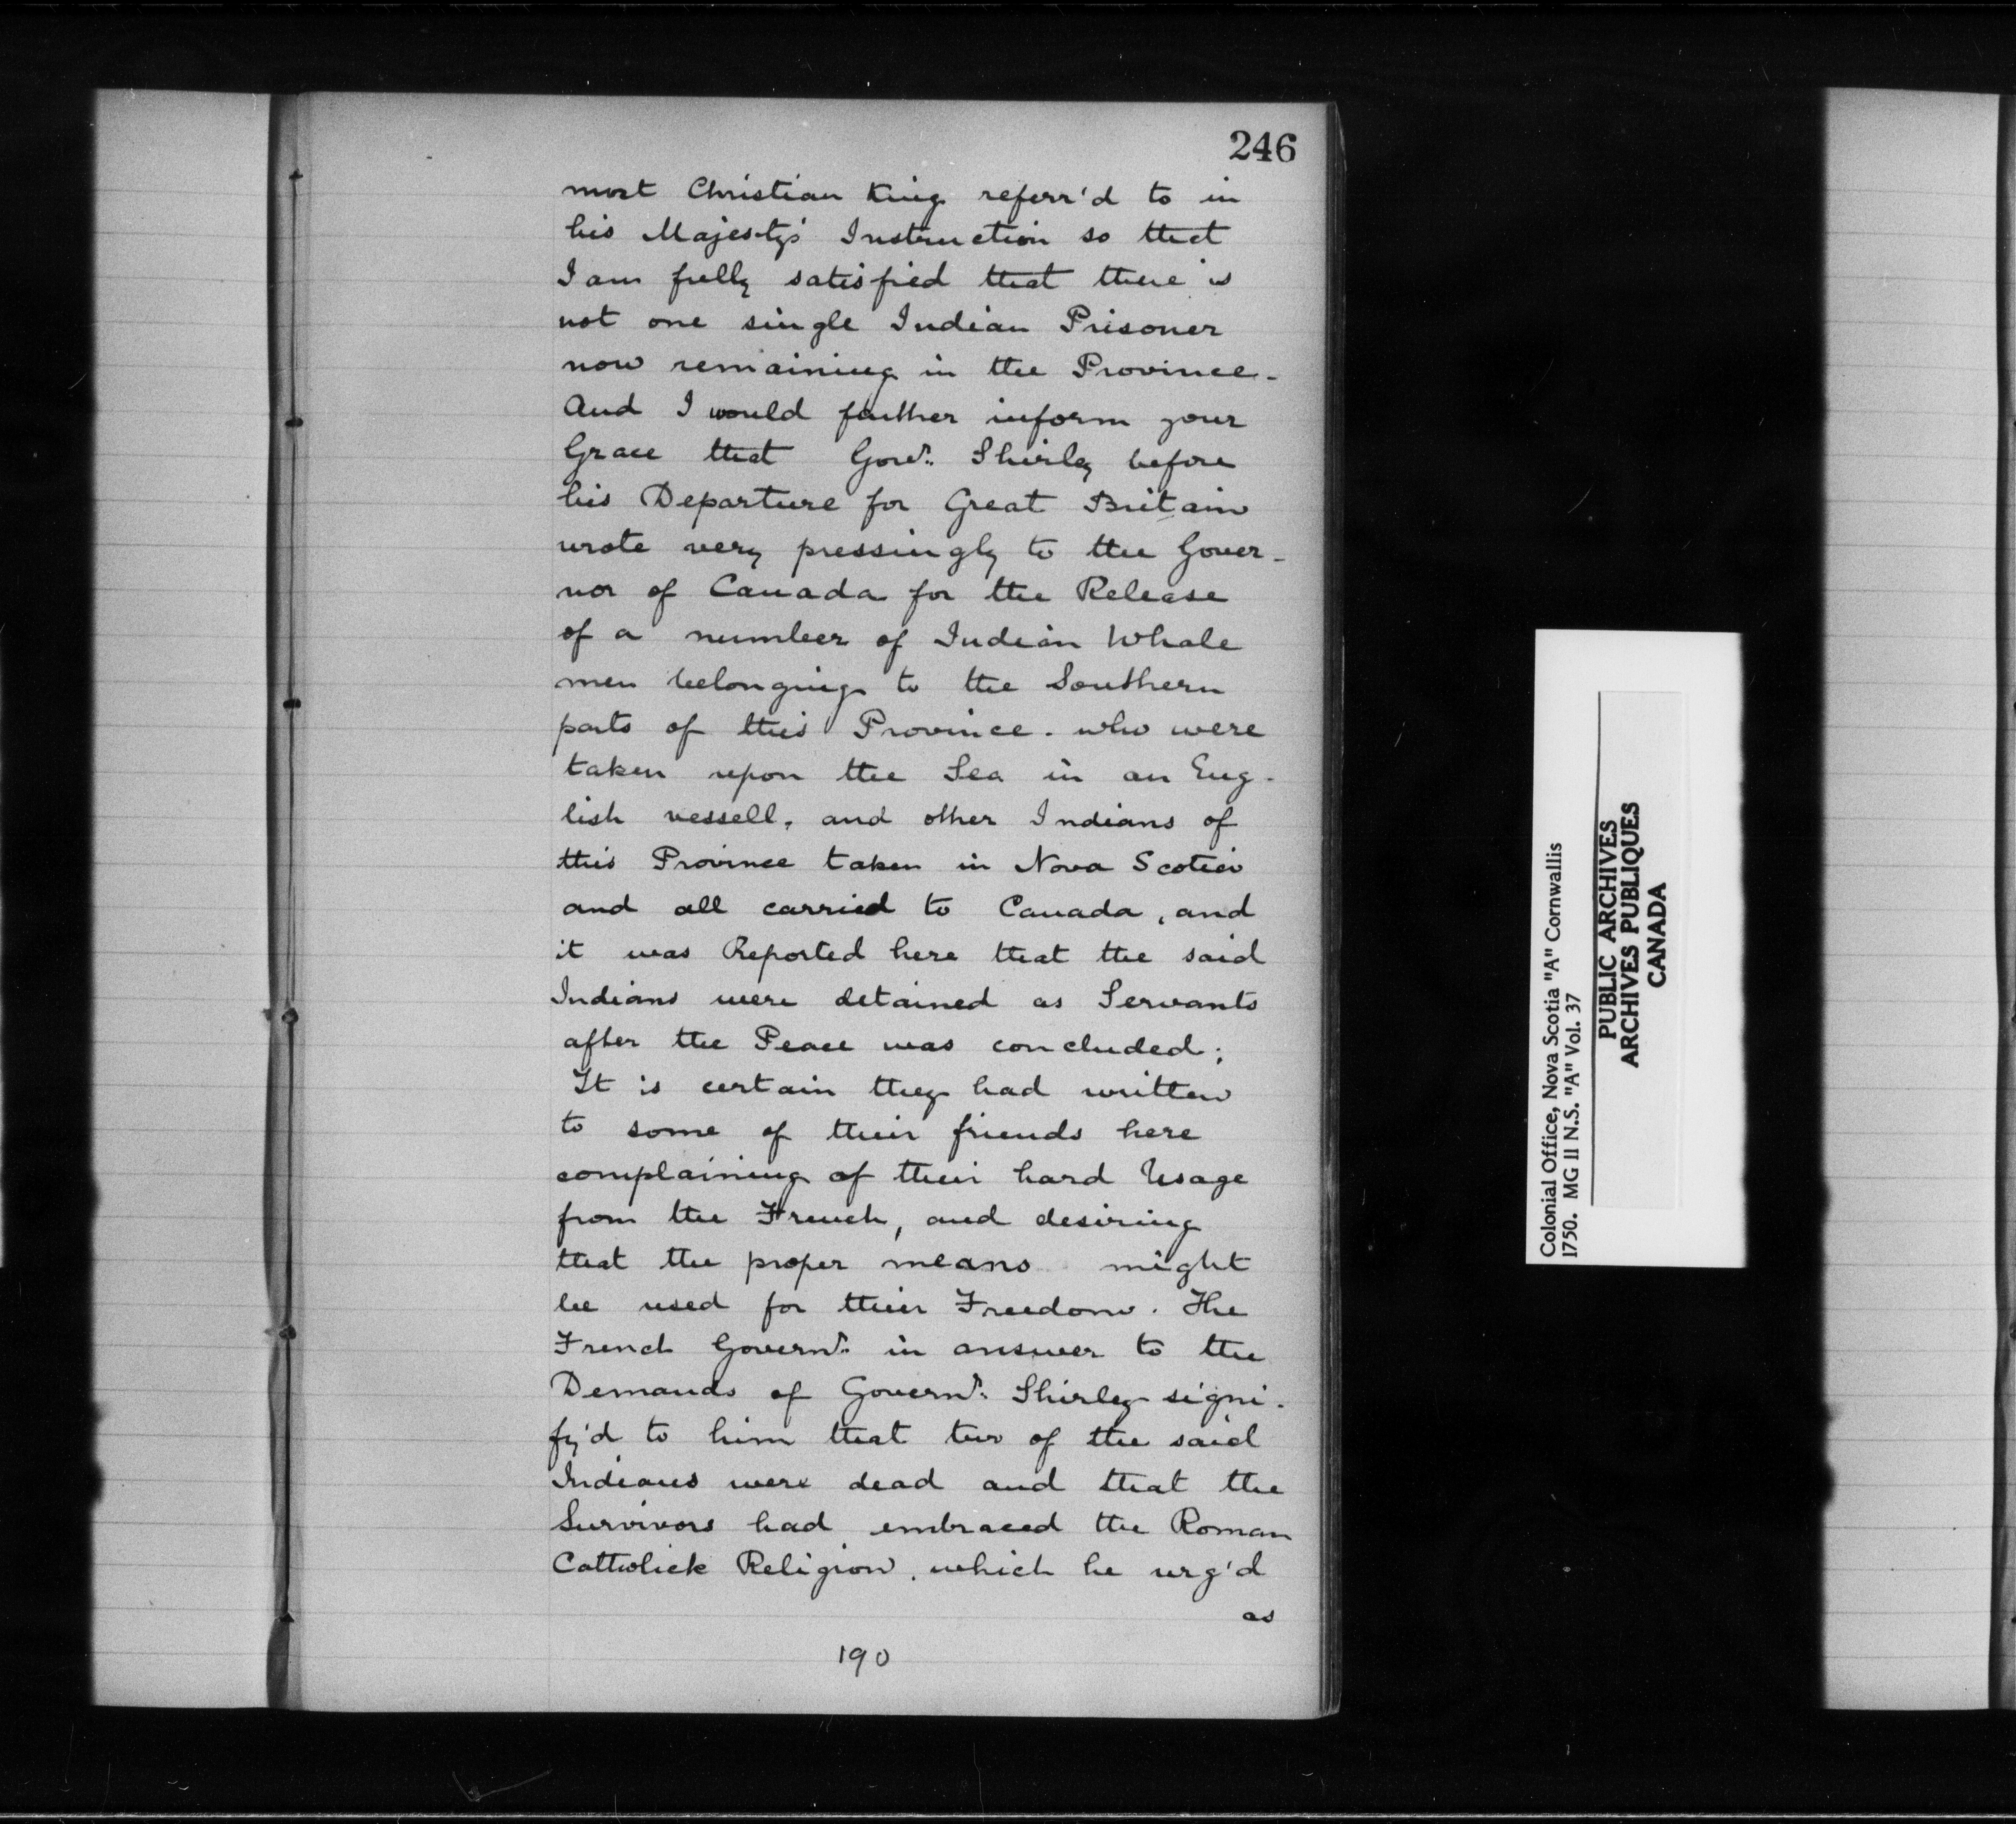 246
most Christian King referr'd to in
his Majesty's Instruction so that
I am fully satisfied that there is
not one single Indian Prisoner
now remaining in the Province -
And I would farther inform your
Grace that Govr. Shirley before
his Departure for Great Britain
wrote very pressingly to the Gover-
nor of Canada for the Release
of a number of Indian Whale
men belonging to the Southern
parts of this Province. who were
taken upon the Sea in an Eng-
lish vessell, and other Indians of
this Province taken in Nova Scotia
and all carried to Canada, and
it was Reported here that the said
Indians were detained as Servants
after the Peace was concluded;
It is certain they had written
to some of their friends here
complaining of their hard Usage
from the French, and desiring
that the proper means might
be used for their Freedom. The
French Governr. in answer to the
Demands of Governr. Shirley signi-
fy'd to him that two of the said
Indians were dead and that the
Survivors had embraced the Roman
Catholick Religion, which he urg'd
as
190
Colonial Office, Nova Scotia "A" Cornwallis
1750. MG 11 N.S. "A" Vol. 37
PUBLIC ARCHIVES
ARCHIVES PUBLIQUES
CANADA